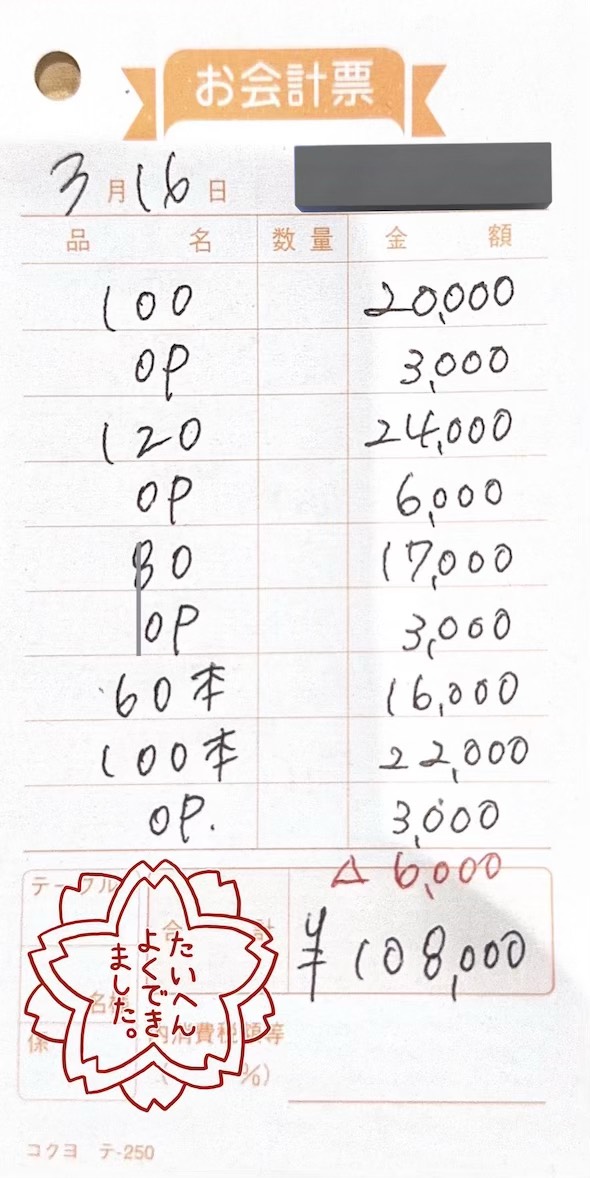 お会計票
3月16日
品名 数量 金額
100 20,000
OP 3,000
120 24,000
OP 6,000
80 17,000
OP 3,000
60本 16,000
100本 22,000
OP. 3,000
△ 6,000
テーブル
合計 ¥108,000
名様
係
内消費税額等
( %)
たいへん
よくでき
ました。
コクヨ テ-250